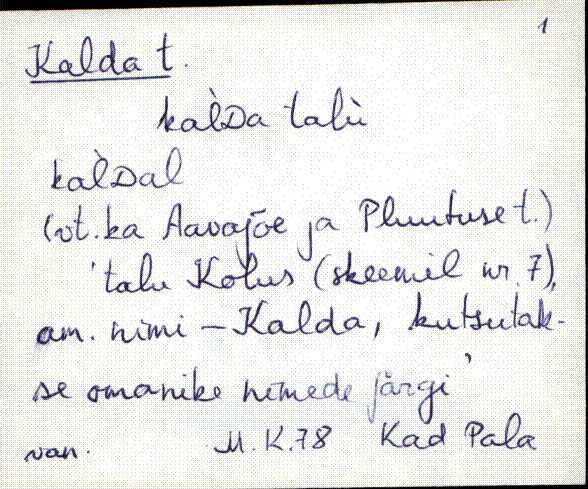 1
Kalda t.
kal̀Da talù
kal̀Dal
(vt. ka Aavajõe ja Pluutuse t.)
'talu Kolus (skeemil nr. 7),
am. nimi – Kalda, kutsutak-
se omanike nimede järgi'
van. M. K. 78 Kad Pala